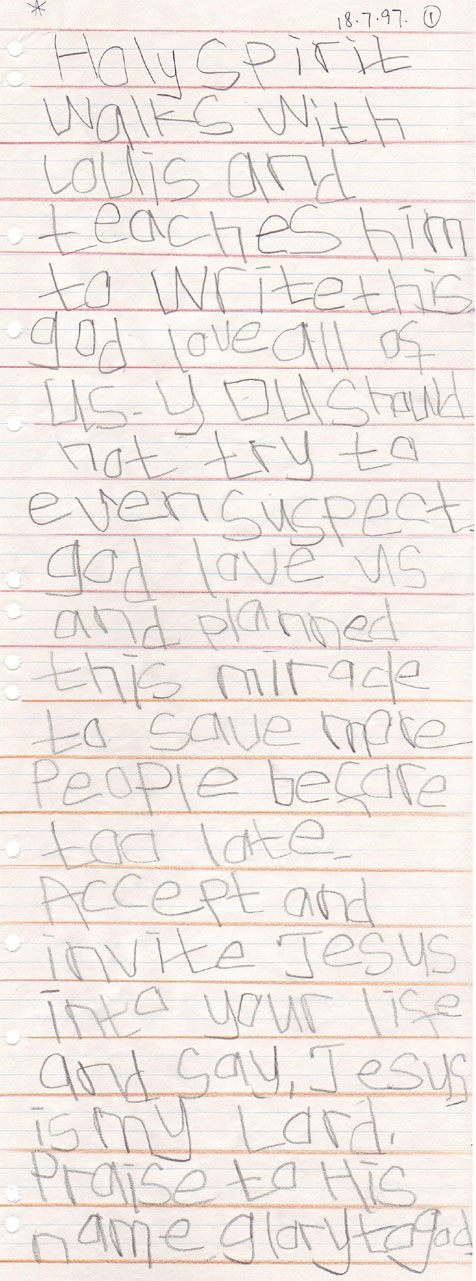 * 18.7.97. ①
Holy spirit
walks with
Louis and
teaches him
to write this.
god love all of
us. You should
not try to
even suspect.
god love us
and planned
this miracle
to save more
People before
too late.
Accept and
invite Jesus
into your life
and say, Jesus
is my Lord.
Praise to His
name. glory to god